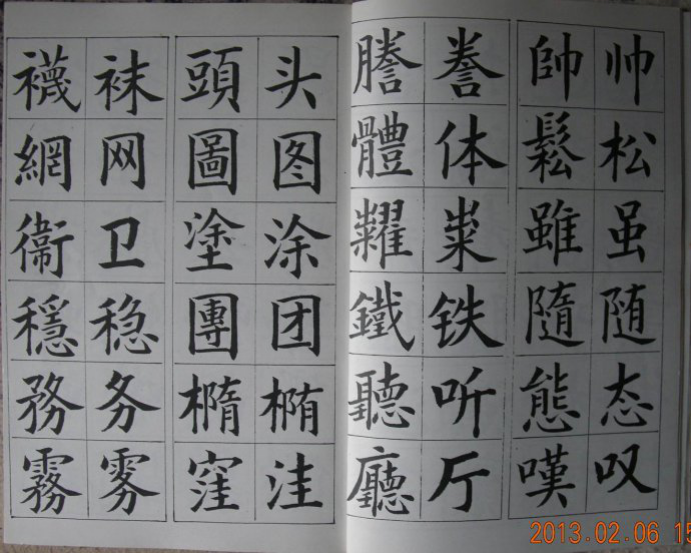 帥 帅
鬆 松
雖 虽
隨 随
態 态
嘆 叹
謄 誊
體 体
糶 粜
鐵 铁
聽 听
廳 厅
頭 头
圖 图
塗 涂
團 团
橢 椭
窪 洼
襪 袜
網 网
衛 卫
穩 稳
務 务
霧 雾
2013.02.06 15